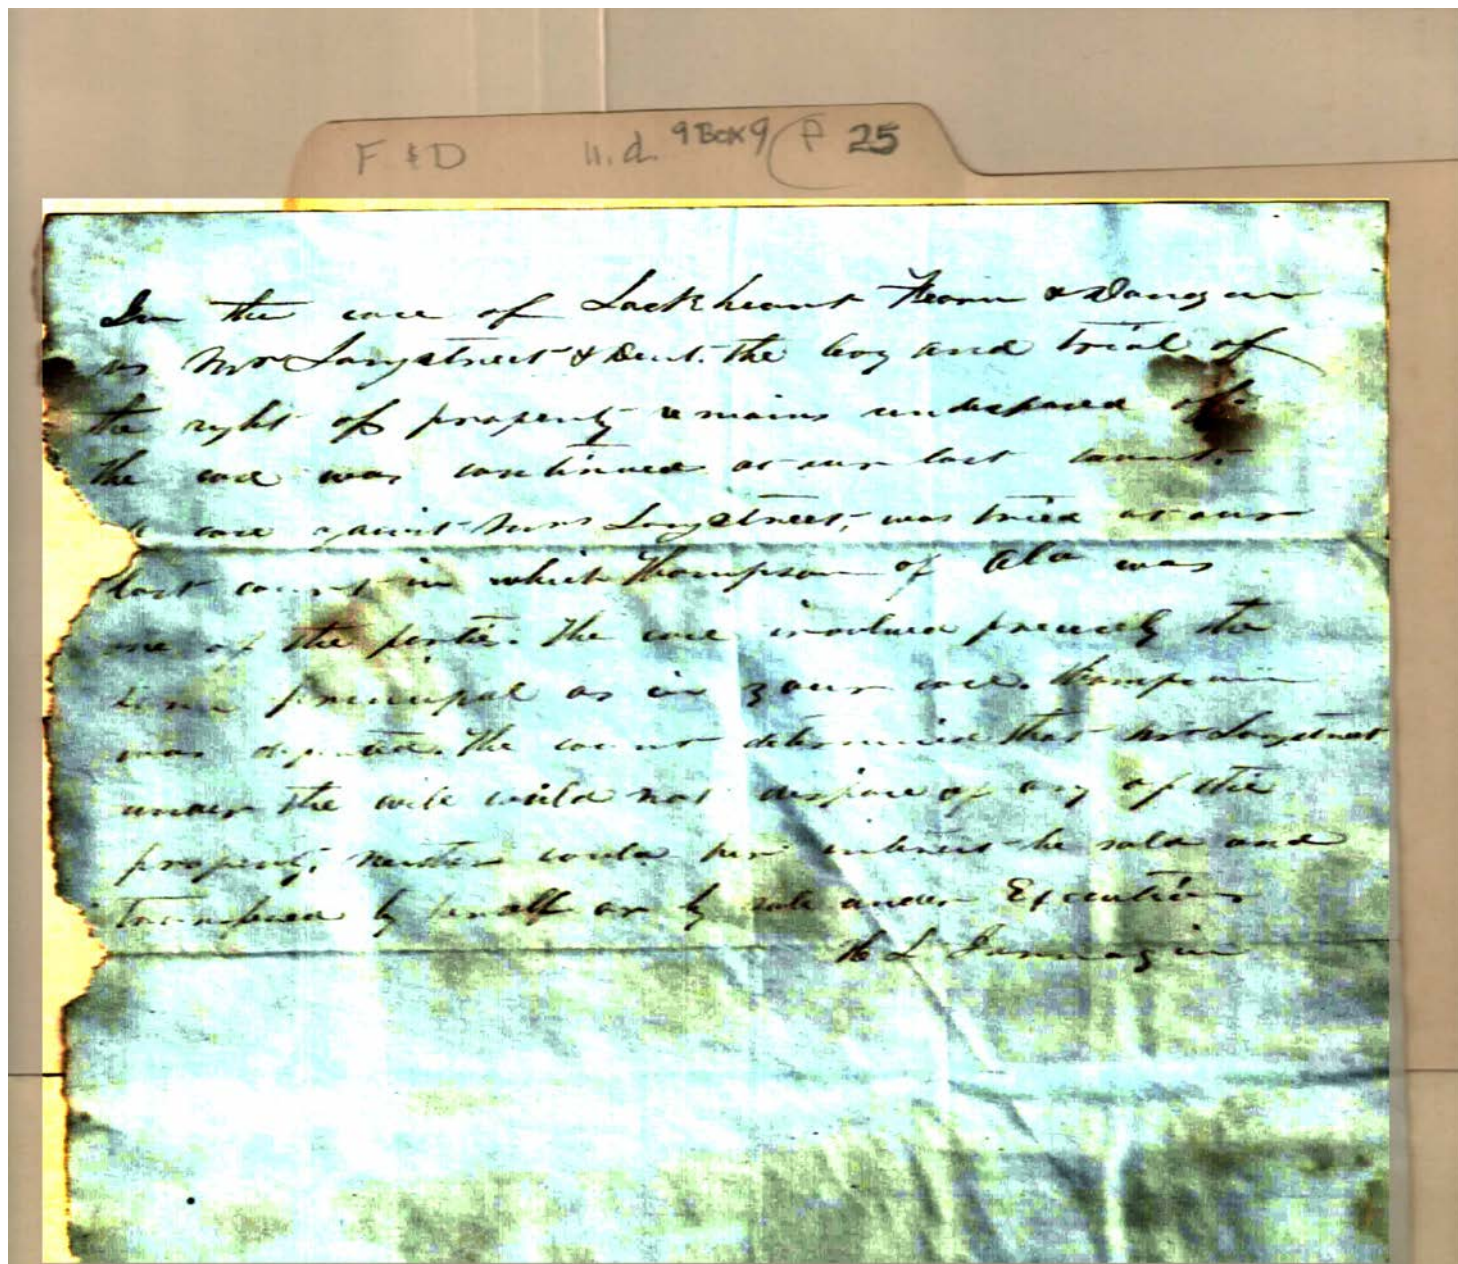 F & D n.d. 9 Box 9 P 25
In the case of Lockheart Fearn & Donegan
vs Mrs Longstreet & Dent. the boy and trial of
the right of property remains undisposed of.
the case was continued at our last court.
case against Mrs Longstreet, was tried at our
last court in which Thompson of Ala was
one of the parties. The case involved precisely the
same principal as in your case. Thompson
was defeated. The court determined that Mrs Longstreet
under the will could not dispose of any of the
property; neither could her interest be sold and
transfered by herself or by sale under Execution
H L